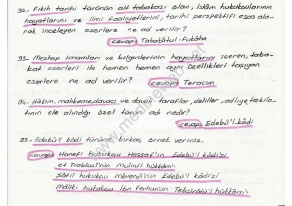 32- Fıkıh tarihi türünün alt tabakası olan, İslâm hukukçularının
hayatlarını ve ilmi faaliyetlerini, tarihi perspektifi esas ala-
rak inceleyen eserlere ne ad verilir?
cevap: Tabakâtul-Fukâha
33- Mezhep imamları ve bilgenlerinin hayatlarını içeren, taba-
kat eserleri ile hemen hemen aynı özellikleri taşıyan
eserlere ne ad verilir?
cevap: Teracim
34- Hâkim, mahkeme, davacı ve davalı taraflar, deliller, adliye teşkila-
tının ele alındığı özel türün adı nedir?
cevap: Edebü'l-kâdî
35- Edebü'l kâdî türüne birkaç örnek veriniz.
cevap: Hanefi hukukçu Hassaf'ın Edebü'l kâdî'si
et Trablusî'nin Muînü'l hükkâmı
Şâfiî hukukçu Mâverdî'nin Edebü'l kâdî'si
Mâliki hukukçu İbn Ferhunun Tebsiratü'l hükkâm'ı